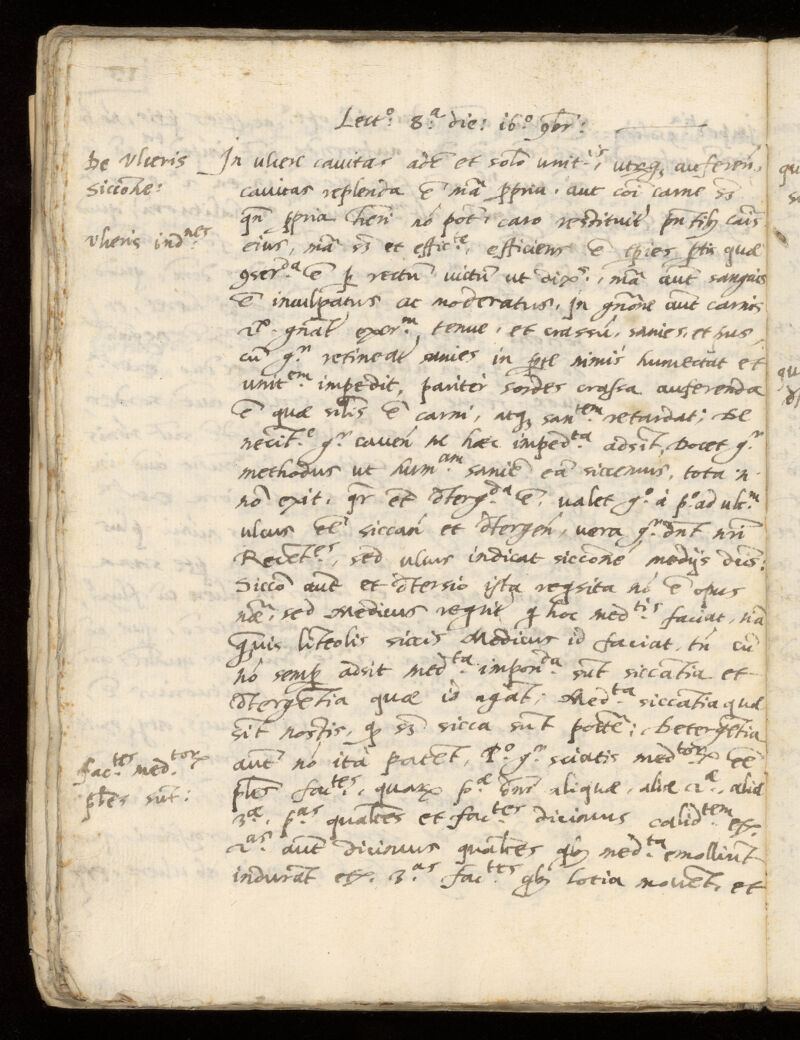 Lect.º 8.ª die: 16.º 9br:
De Ulceris
Siccione:
Ulceris ind.nes
In ulcere cavitas adē et solō unit.is, utraq; auferen.
cavitas replenda ē mā ppria, aut coi carne sz
qn ppria heri nō pot, caro restituit pntib caus
eius, mā sz et effic.te, efficiens ē ptis quæ
9ser.da ē p rectū victū ut dix., mā aut sanguis
ē inculpatus ac moderatus, In gnōne aut carnis
2.x gnāt excr.m, tenue, et crassū, sanies, et pus,
cū g.r retineat sanies in pte nimis humectat et
unit.em impedit, pariter sordes crassa auferenda
ē quæ silis ē carni, atq; san.tem retardat; De
necit.e g.r caven ne hæc imped.ta adsit, Docet g.r
methodus ut hum.am saniē eā siccemus, tota n.
nō exit, qr et dterg.da ē, valet g.o à p.o ad ult.m
ulcus eē siccan et dtergen, vera g.r dnt nri
Recēt.es, sed ulcus indicat siccionē medijs
Siccō aut et dtersio ista reqsita nō ē opus
næ, sed Medicus reqrit q hoc med.tis faciat, nā
qvis linteolis siccis Medicus id faciat, tn cū
nō semp adsit med.ta impon.da sūt siccātia et
dtergētia quæ id agāt; Med.ta siccātia quæ
sit nostis, q sz sicca sūt ; Detergētia
aut nō ita patent, P.o g.r sciatis med.torx eē
Fac.tes med.torx
ples sūt:
ples fac.tes, quarx p.æ dnr aliquæ, aliæ 2.æ, aliæ
3.æ, p.as qualtes et fac.tes dicimus calid.tem etx.
2.as aut dicimus qualtes qb; med.ta emolliūt
indurāt etx. 3.as fac.tes qb; lotia movēt, et